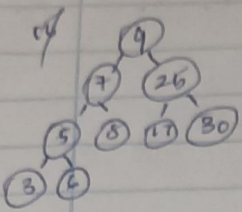 9
7 26
5 8 17 30
3 6